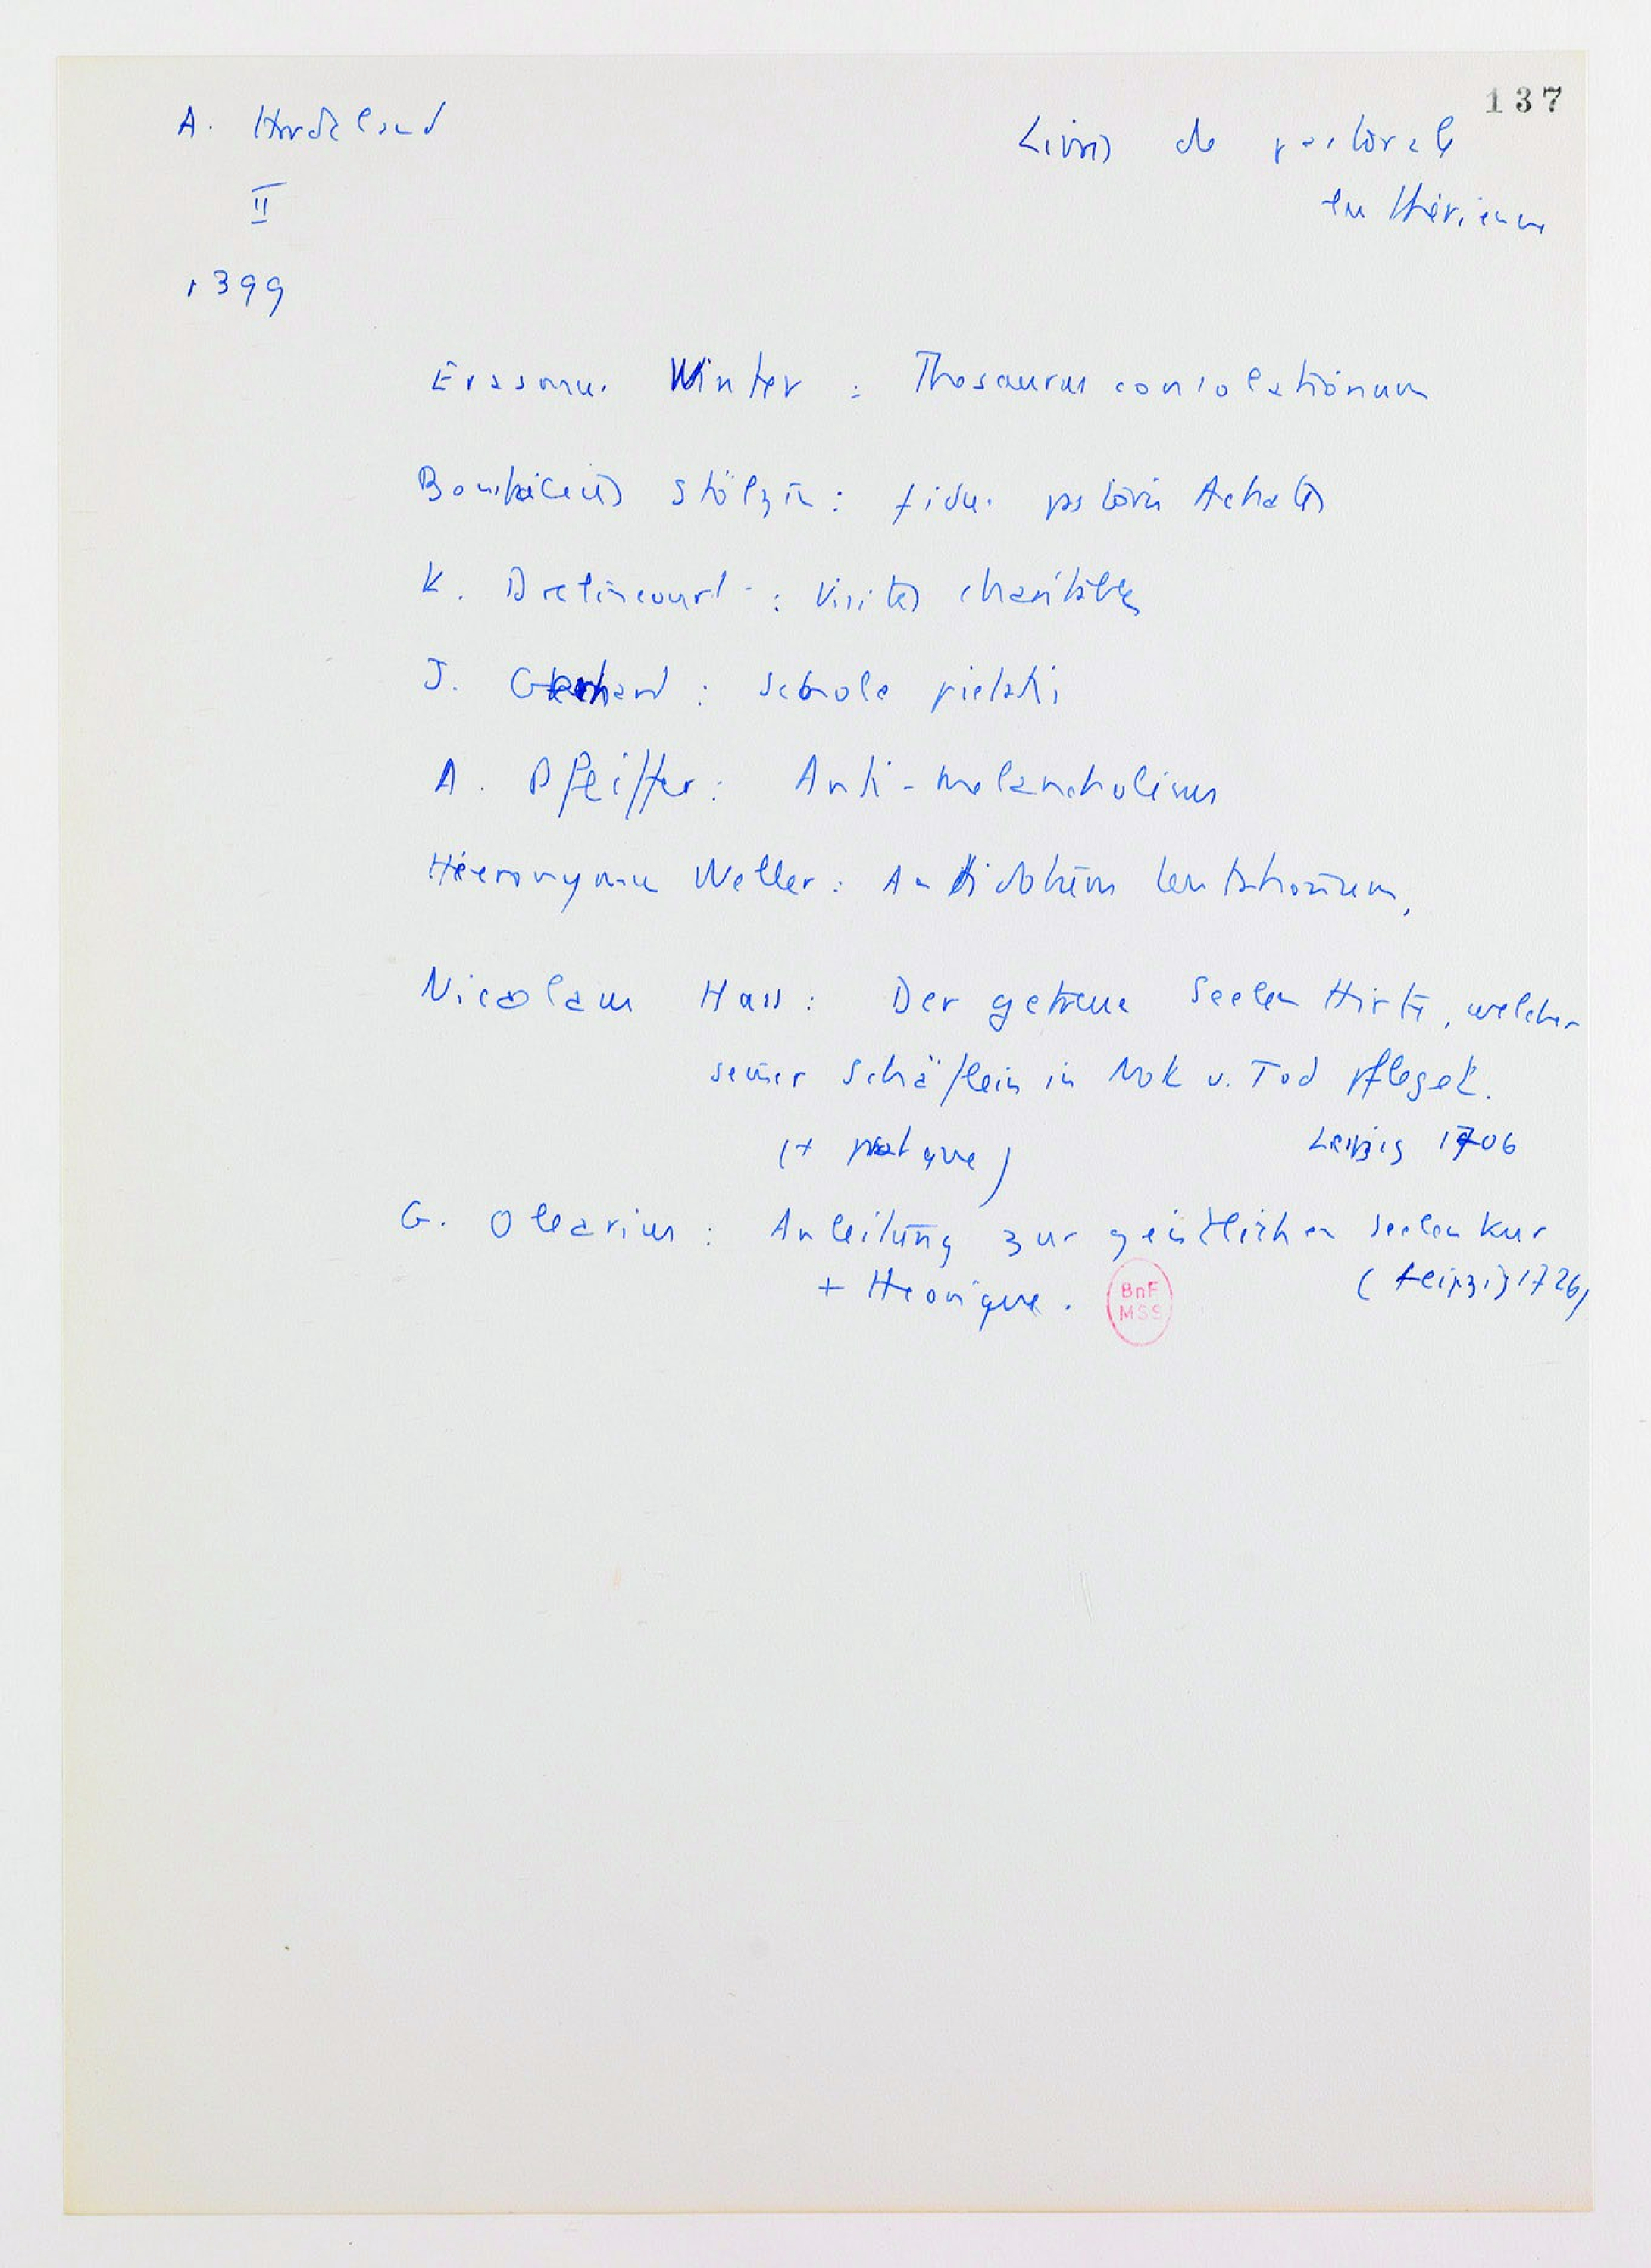 137
A. Hardeland
II
1399
Livres de pastorale
luthérienne
Erasmus Winter : Thesaurus consolationum
Bonifacius Stölzlin : fidus pastoris Achates
K. Drelincourt : Visites charitables
J. Gerhard : Schola pietatis
A. Pfeiffer : Anti-melancholicus
Hieronymus Weller : Antidotum tentationum,
Nicolaus Hass : Der getreue Seelen Hirte, welcher
seiner Schäflein in Not u. Tod pfleget.
(+ pratique) Leipzig 1706
G. Olearius : Anleitung zur geistlichen Seelenkur
+ théorique. (Leipzig 1726)
BnF
MSS